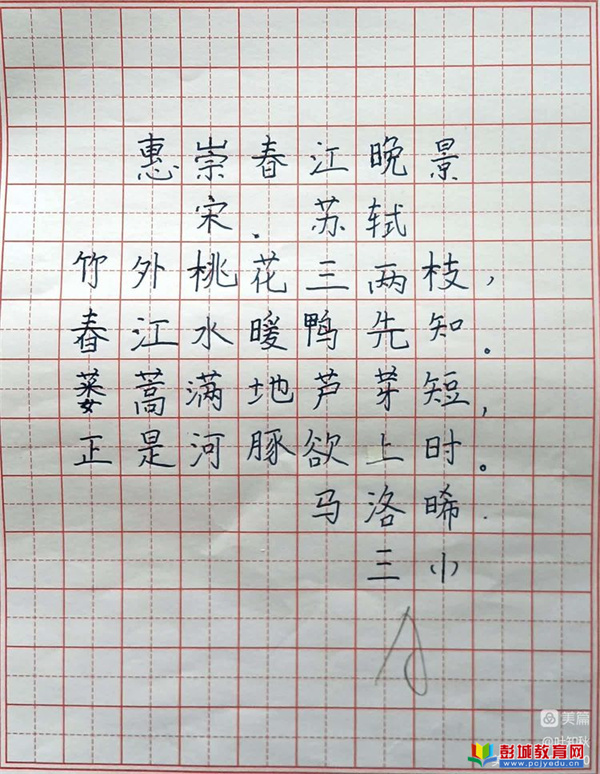 惠崇春江晚景
宋.苏轼
竹外桃花三两枝,
春江水暖鸭先知。
蒌蒿满地芦芽短,
正是河豚欲上时。
马洛晞.
三小
美篇
@叶知秋
彭城教育网
www.pcjyedu.cn